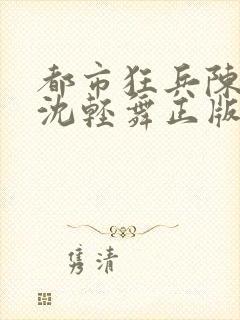 都市狂兵陳
沈輕舞正版
隽清